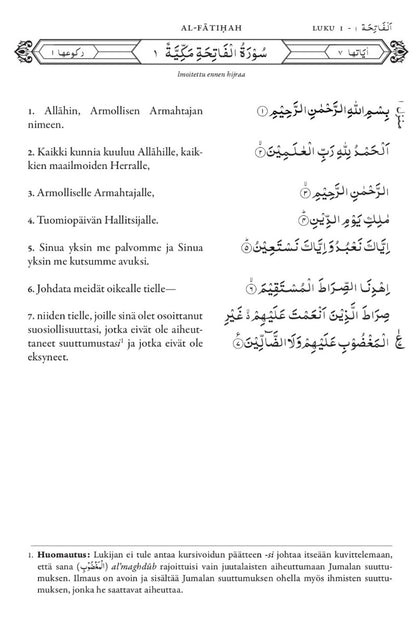 AL-FĀTIḤAH
LUKU 1 - ١ اَلْفَاتِحَة
اٰيَاتها ٧
سُوْرَةُ الْفَاتِحَةِ مَكِّيَّةٌ ١
ركوعها ١
Ilmoitettu ennen hijraa
1. Allāhin, Armollisen Armahtajan
nimeen.
بِسْمِ اللّٰهِ الرَّحْمٰنِ الرَّحِيْمِ ۝١
منزل ١
2. Kaikki kunnia kuuluu Allāhille, kaik-
kien maailmoiden Herralle,
اَلْحَمْدُ لِلّٰهِ رَبِّ الْعٰلَمِيْنَ ۝٢
3. Armolliselle Armahtajalle,
الرَّحْمٰنِ الرَّحِيْمِ ۝٣
4. Tuomiopäivän Hallitsijalle.
مٰلِكِ يَوْمِ الدِّيْنِ ۝٤
5. Sinua yksin me palvomme ja Sinua
yksin me kutsumme avuksi.
اِيَّاكَ نَعْبُدُ وَاِيَّاكَ نَسْتَعِيْنُ ۝٥
6. Johdata meidät oikealle tielle—
اِهْدِنَا الصِّرَاطَ الْمُسْتَقِيْمَ ۝٦
7. niiden tielle, joille sinä olet osoittanut
suosiollisuuttasi, jotka eivät ole aiheut-
taneet suuttumustasi¹ ja jotka eivät ole
eksyneet.
صِرَاطَ الَّذِيْنَ اَنْعَمْتَ عَلَيْهِمْ ۙ غَيْرِ
الْمَغْضُوْبِ عَلَيْهِمْ وَلَا الضَّآلِّيْنَ ۝٧
ع
1. Huomautus: Lukijan ei tule antaa kursivoidun päätteen -si johtaa itseään kuvittelemaan,
että sana (الْمَغْضُوْبِ) al’maghdūb rajoittuisi vain juutalaisten aiheuttamaan Jumalan suuttu-
mukseen. Ilmaus on avoin ja sisältää Jumalan suuttumuksen ohella myös ihmisten suuttu-
muksen, jonka he saattavat aiheuttaa.